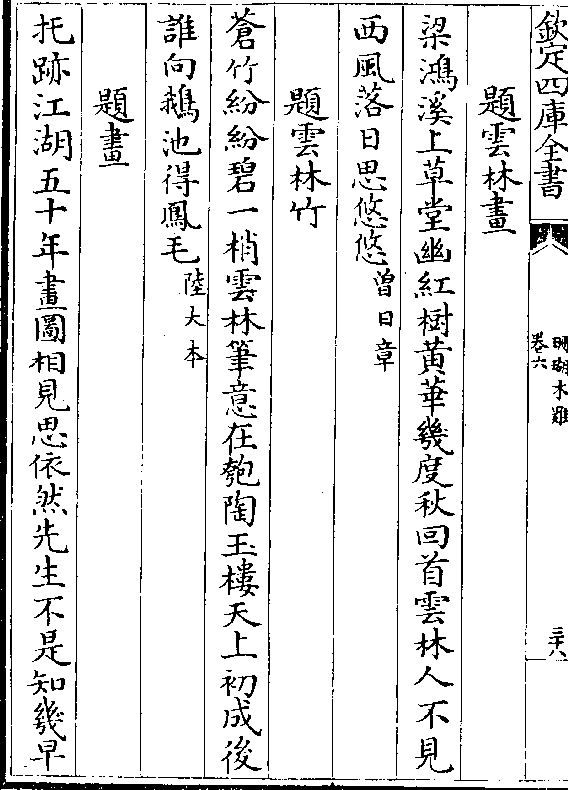 欽定四庫全書
珊瑚木難
卷六
三十八
題雲林畫
梁鴻溪上草堂幽紅樹黄華幾度秋回首雲林人不見
西風落日思悠悠曾日章
題雲林竹
蒼竹紛紛碧一梢雲林筆意在匏陶玉樓天上初成後
誰向鵝池得鳳毛陸大本
題畫
托跡江湖五十年畫圖相見思依然先生不是知幾早